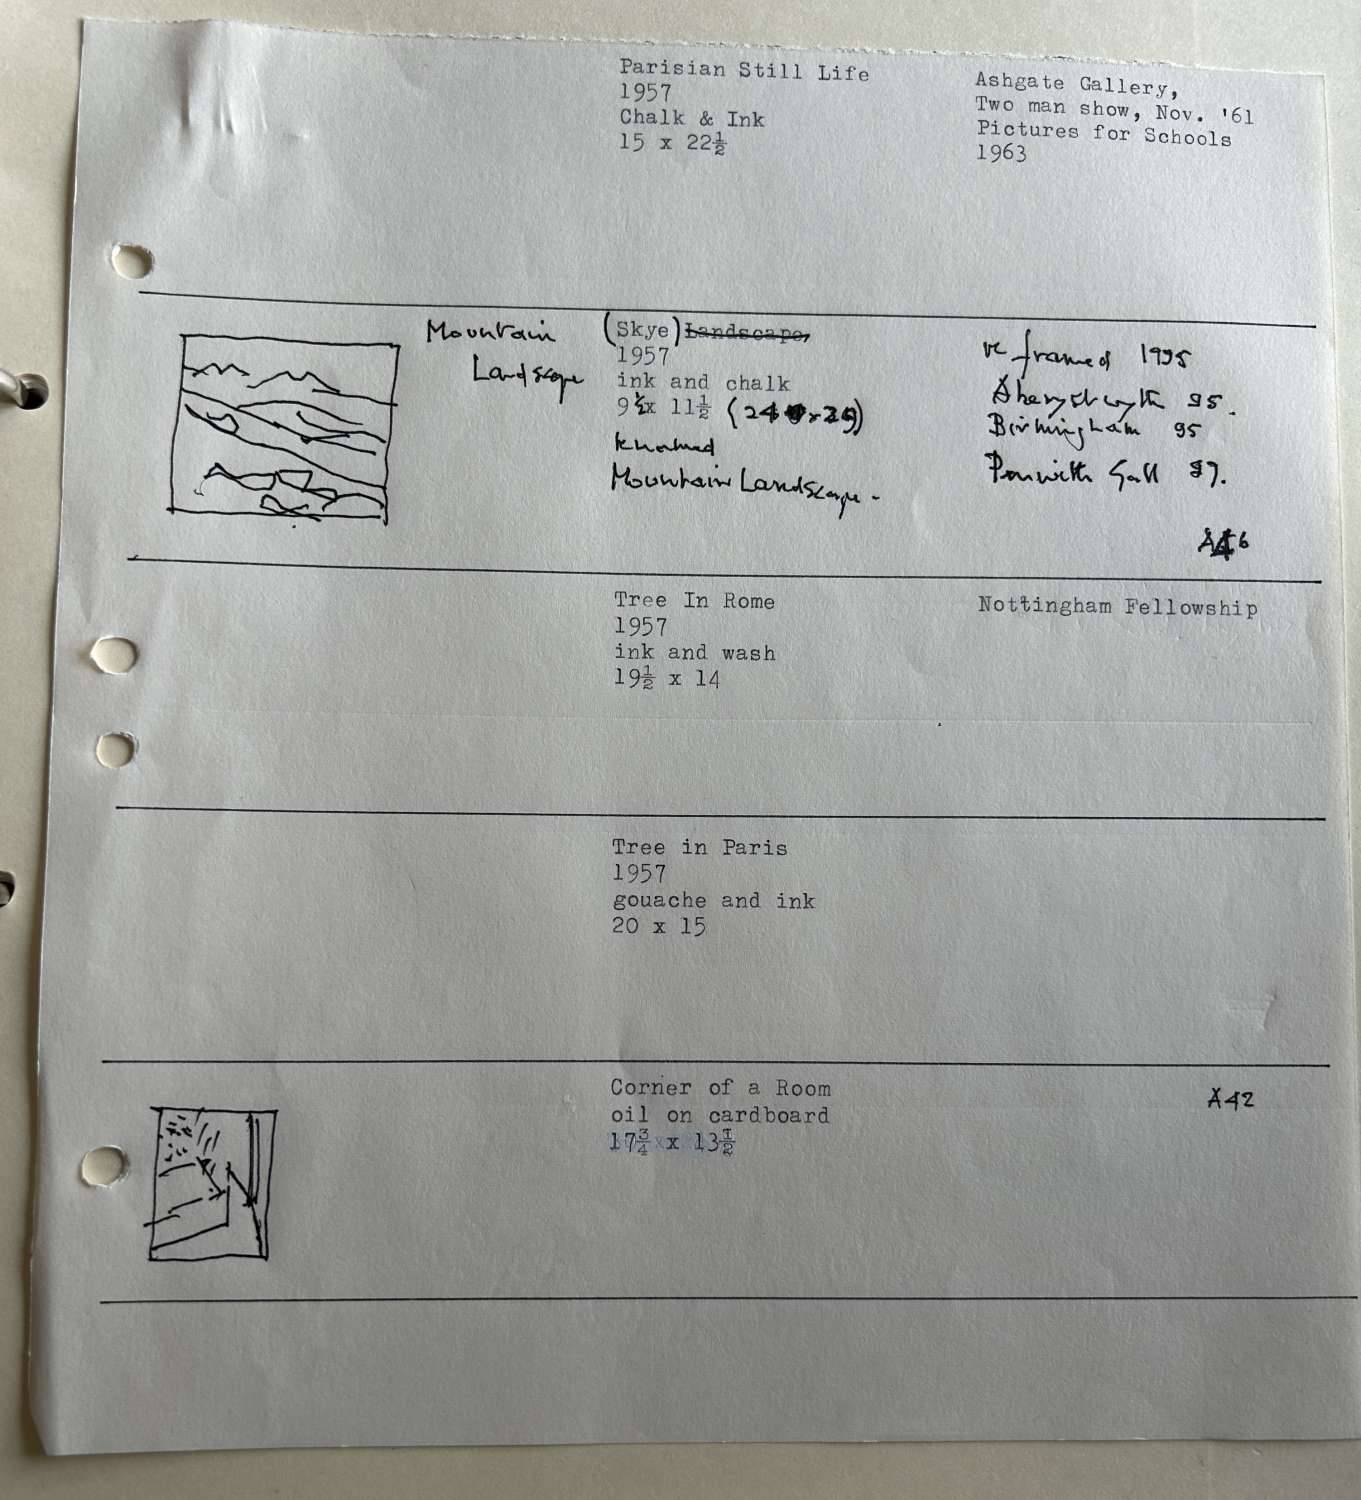 Parisian Still Life
1957
Chalk & Ink
15 x 22½
Ashgate Gallery,
Two man show, Nov. '61
Pictures for Schools
1963
Mountain
Landscape
(Skye) Landscape,
1957
ink and chalk
9½x 11½ (24 x 29)
Mountain Landscape -
re framed 1995
Aberystwyth 95.
Birmingham 95
Penwith Gall 97.
Tree In Rome
1957
ink and wash
19½ x 14
Nottingham Fellowship
Tree in Paris
1957
gouache and ink
20 x 15
Corner of a Room
oil on cardboard
17¾ x 13½
A42